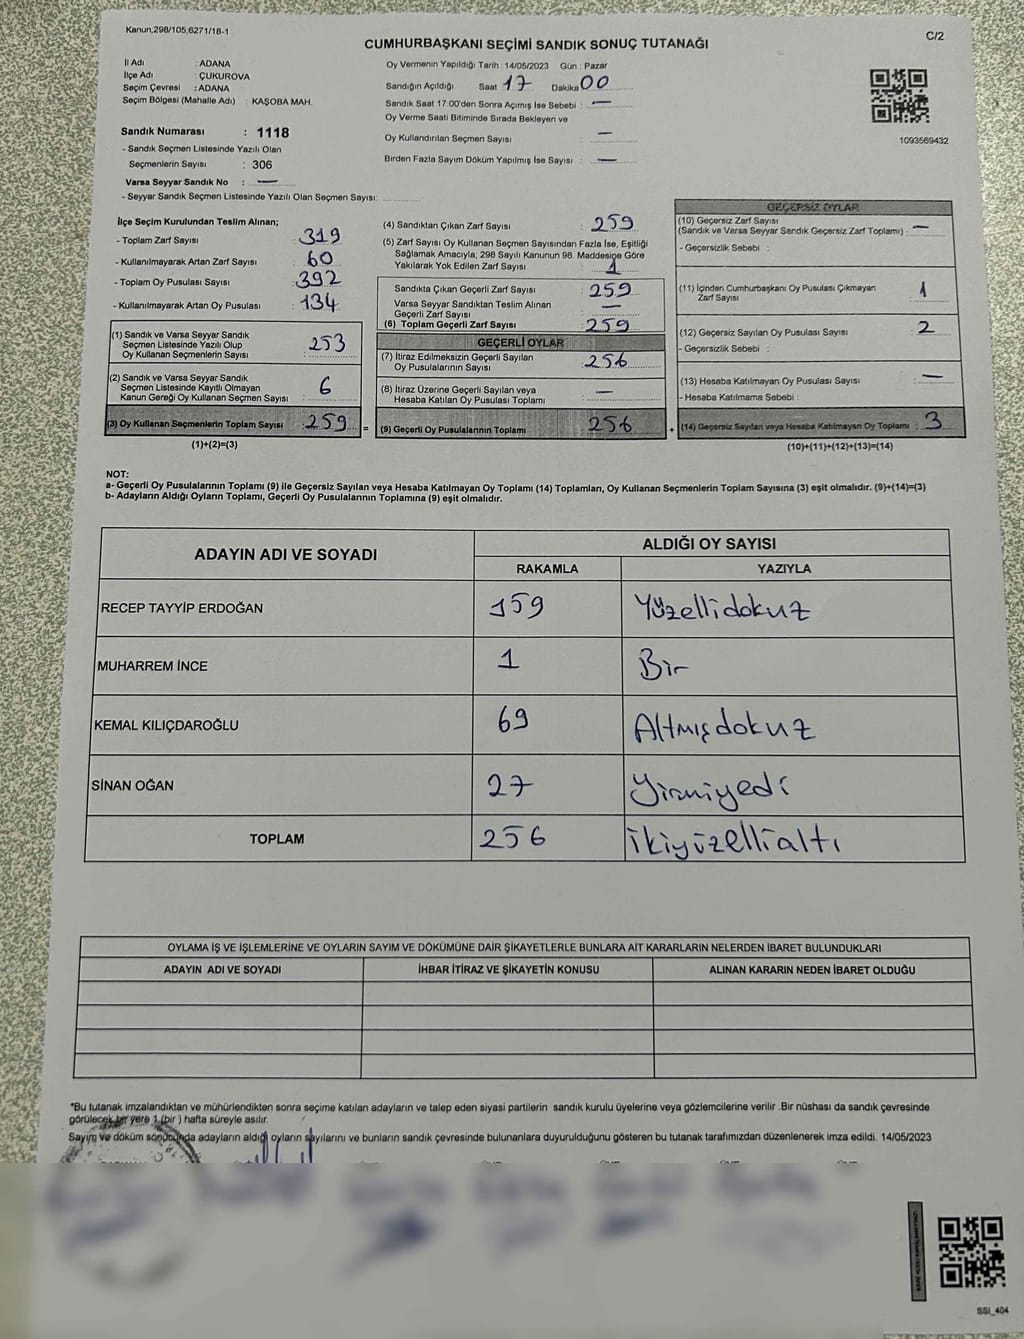 Kanun,298/105,6271/18-1
C/2
CUMHURBAŞKANI SEÇİMİ SANDIK SONUÇ TUTANAĞI
İl Adı : ADANA
İlçe Adı : ÇUKUROVA
Seçim Çevresi : ADANA
Seçim Bölgesi (Mahalle Adı) : KAŞOBA MAH.
Oy Vermenin Yapıldığı Tarih : 14/05/2023 Gün : Pazar
Sandığın Açıldığı Saat 17 Dakika 00
Sandık Saat 17:00'den Sonra Açımış İse Sebebi : —
Oy Verme Saati Bitiminde Sırada Bekleyen ve
Oy Kullandırılan Seçmen Sayısı : —
Birden Fazla Sayım Döküm Yapılmış İse Sayısı : —
1093569432
Sandık Numarası : 1118
- Sandık Seçmen Listesinde Yazılı Olan
Seçmenlerin Sayısı : 306
Varsa Seyyar Sandık No : —
- Seyyar Sandık Seçmen Listesinde Yazılı Olan Seçmen Sayısı:
İlçe Seçim Kurulundan Teslim Alınan;
- Toplam Zarf Sayısı : 319
- Kullanılmayarak Artan Zarf Sayısı : 60
- Toplam Oy Pusulası Sayısı : 392
- Kullanılmayarak Artan Oy Pusulası : 134
(1) Sandık ve Varsa Seyyar Sandık
Seçmen Listesinde Yazılı Olup
Oy Kullanan Seçmenlerin Sayısı : 253
(2) Sandık ve Varsa Seyyar Sandık
Seçmen Listesinde Kayıtlı Olmayan
Kanun Gereği Oy Kullanan Seçmen Sayısı : 6
(3) Oy Kullanan Seçmenlerin Toplam Sayısı : 259 =
(1)+(2)=(3)
(4) Sandıktan Çıkan Zarf Sayısı : 259
(5) Zarf Sayısı Oy Kullanan Seçmen Sayısından Fazla İse, Eşitliği
Sağlamak Amacıyla, 298 Sayılı Kanunun 98. Maddesine Göre
Yakılarak Yok Edilen Zarf Sayısı : 1
Sandıkta Çıkan Geçerli Zarf Sayısı : 259
Varsa Seyyar Sandıktan Teslim Alınan
Geçerli Zarf Sayısı : —
(6) Toplam Geçerli Zarf Sayısı : 259
GEÇERLİ OYLAR
(7) İtiraz Edilmeksizin Geçerli Sayılan
Oy Pusulalarının Sayısı : 256
(8) İtiraz Üzerine Geçerli Sayılan veya
Hesaba Katılan Oy Pusulası Toplamı : —
(9) Geçerli Oy Pusulalarının Toplamı : 256 +
GEÇERSİZ OYLAR
(10) Geçersiz Zarf Sayısı
(Sandık ve Varsa Seyyar Sandık Geçersiz Zarf Toplamı) : —
- Geçersizlik Sebebi :
(11) İçinden Cumhurbaşkanı Oy Pusulası Çıkmayan
Zarf Sayısı : 1
(12) Geçersiz Sayılan Oy Pusulası Sayısı : 2
- Geçersizlik Sebebi :
(13) Hesaba Katılmayan Oy Pusulası Sayısı : —
- Hesaba Katılmama Sebebi :
(14) Geçersiz Sayılan veya Hesaba Katılmayan Oy Toplamı : 3
(10)+(11)+(12)+(13)=(14)
NOT:
a- Geçerli Oy Pusulalarının Toplamı (9) ile Geçersiz Sayılan veya Hesaba Katılmayan Oy Toplamı (14) Toplamları, Oy Kullanan Seçmenlerin Toplam Sayısına (3) eşit olmalıdır. (9)+(14)=(3)
b- Adayların Aldığı Oyların Toplamı, Geçerli Oy Pusulalarının Toplamına (9) eşit olmalıdır.
ADAYIN ADI VE SOYADI
ALDIĞI OY SAYISI
RAKAMLA YAZIYLA
RECEP TAYYİP ERDOĞAN 159 Yüzellidokuz
MUHARREM İNCE 1 Bir
KEMAL KILIÇDAROĞLU 69 Altmışdokuz
SİNAN OĞAN 27 Yirmiyedi
TOPLAM 256 ikiyüzellialtı
OYLAMA İŞ VE İŞLEMLERİNE VE OYLARIN SAYIM VE DÖKÜMÜNE DAİR ŞİKAYETLERLE BUNLARA AİT KARARLARIN NELERDEN İBARET BULUNDUKLARI
ADAYIN ADI VE SOYADI İHBAR İTİRAZ VE ŞİKAYETİN KONUSU ALINAN KARARIN NEDEN İBARET OLDUĞU
*Bu tutanak imzalandıktan ve mühürlendikten sonra seçime katılan adayların ve talep eden siyasi partilerin sandık kurulu üyelerine veya gözlemcilerine verilir .Bir nüshası da sandık çevresinde
görülecek bir yere 1 (bir ) hafta süreyle asılır.
Sayım ve döküm sonucunda adayların aldığı oyların sayılarını ve bunların sandık çevresinde bulunanlara duyurulduğunu gösteren bu tutanak tarafımızdan düzenlenerek imza edildi. 14/05/2023
SSI_404